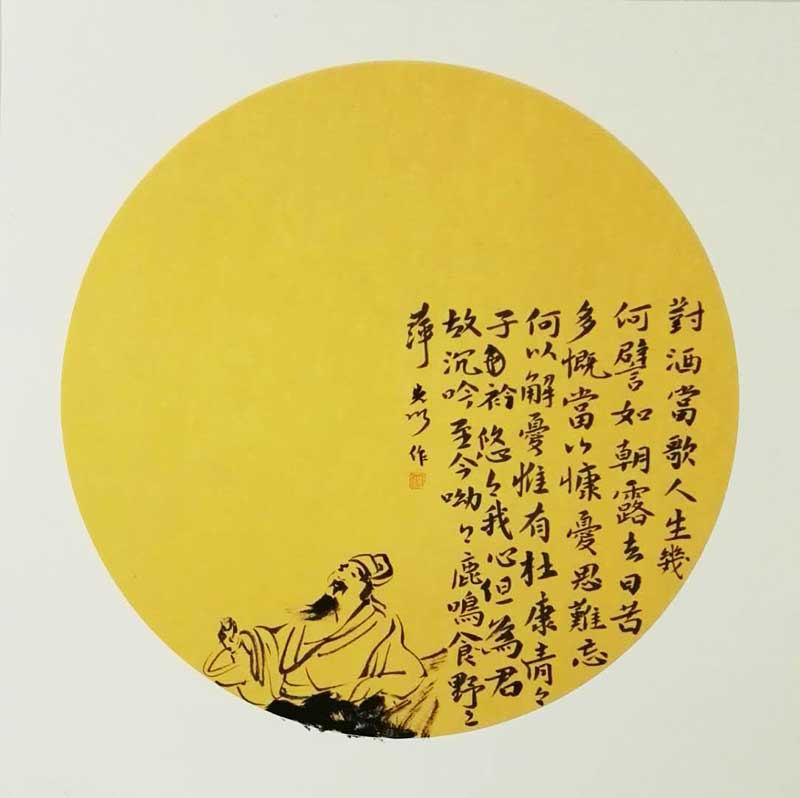 對酒當歌人生幾
何譬如朝露去日苦
多慨當以慷憂思難忘
何以解憂惟有杜康青々
子衿悠々我心但為君
故沉吟至今呦々鹿鳴食野之
萍
作